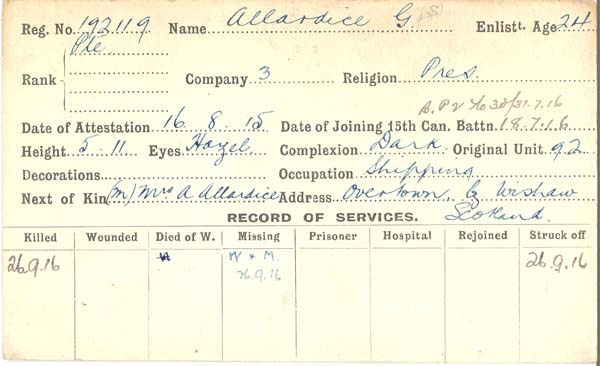 Reg. No. 192119 Name Allardice G. Enlistt. Age 24
Pte
Rank Company 3 Religion Pres.
31.7.16
Date of Attestation 16 8 15 Date of Joining 15th Can. Battn. 18.7.16
Height 5 - 11 Eyes Hazel Complexion Dark Original Unit 92
Decorations Occupation Shipping
Next of Kin (M) Mrs A Allardice Address Overtown, by Wishaw
Scotland.
RECORD OF SERVICES.
Killed Wounded Died of W. Missing Prisoner Hospital Rejoined Struck off
26.9.16 W + M. 26.9.16
26.9.16